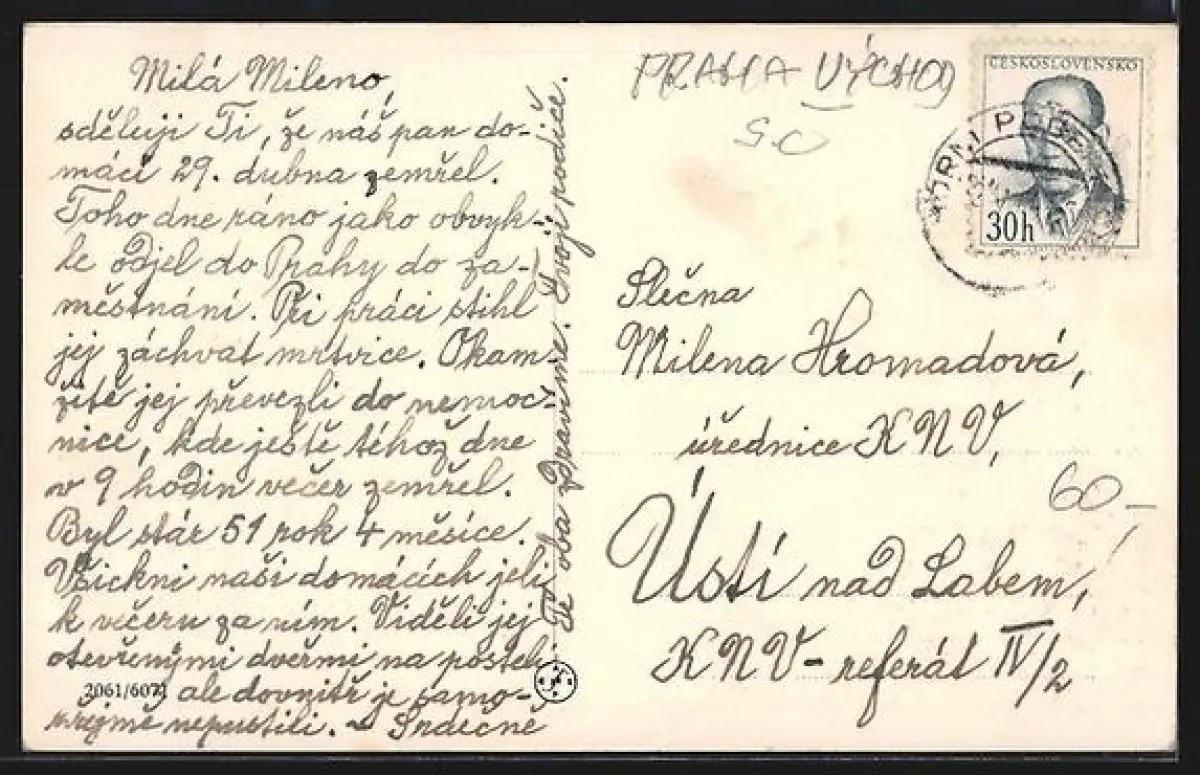 Milá Mileno,
sděluji Ti, že náš pan do-
mácí 29. dubna zemřel.
Toho dne ráno jako obvyk-
le odjel do Prahy do za-
městnání. Při práci stihl
jej záchvat mrtvice. Okam-
žitě jej převezli do nemoc-
nice, kde ještě téhož dne
v 9 hodin večer zemřel.
Byl stár 51 rok 4 měsíce.
Všickni naši domácích jeli
k večeru za ním. Viděli jej
otevřenými dveřmi na posteli
2061/6071 ale dovnitř je samo-
zřejmě nepustili. – Srdečně
Tě oba zdravíme. Tvoji rodiče.
PRAHA VÝCHOD
SC
ČESKOSLOVENSKO
30h
Slečna
Milena Hromadová,
úřednice KNV,
Ústí nad Labem,
KNV – referát IV/2
60,-